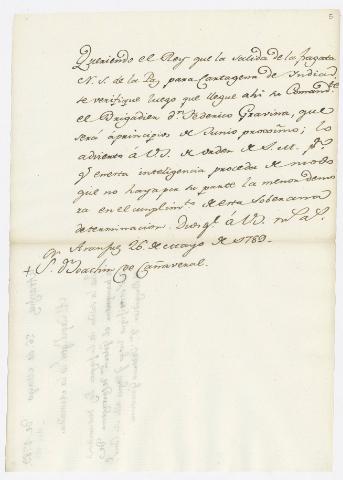 5
Queriendo el Rey que la salida de la fragata
N. S. de la Paz para Cartagena de Indias
se verifique luego que llegue ahi su Comand.te
el Brigadier d.n Federico Gravina, que
será á principios de Junio proximo; lo
advierto á V.S. de orden de S. M. p.a
q.e en esta inteligencia proceda de modo
que no haya por su parte la menor demo
ra en el cumplim.to de esta Soberana
determinacion. Dios g.e á V.S. m.s a.s
Aranjuez 26 de mayo de 1789.
S. d.n Joachin de Cañaveral.